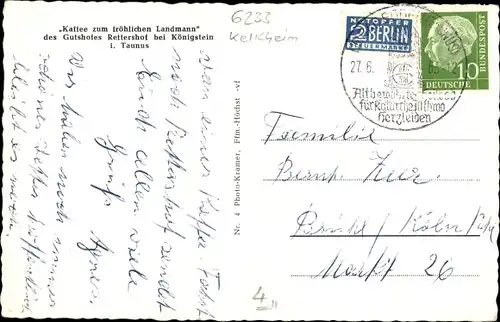 „Kaffee zum fröhlichen Landmann"
des Gutshofes Rettershof bei Königstein
i. Taunus
6233
Kelkheim
Von einer Kaffee-Fahrt
nach Rettershof sendet
Euch allen viele
Grüße
Wir haben noch immer
schönes Wetter hoffentlich
bleibt es noch
Nr. 4 Photo-Kramer, Ffm.-Höchst
NOTOPFER
2 BERLIN
STEUERMARKE
27.6.
Altbewährtes
für
Herzleiden
10
DEUTSCHE
BUNDESPOST
Familie
Bernh.
Brühl / Köln
Markt 26
4